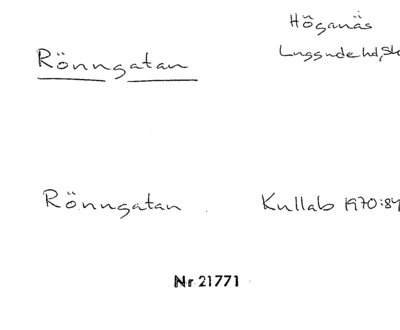 Rönngatan
Höganäs
Luggude hd, Sk
Rönngatan
Kullab 1970:84
Nr 21771